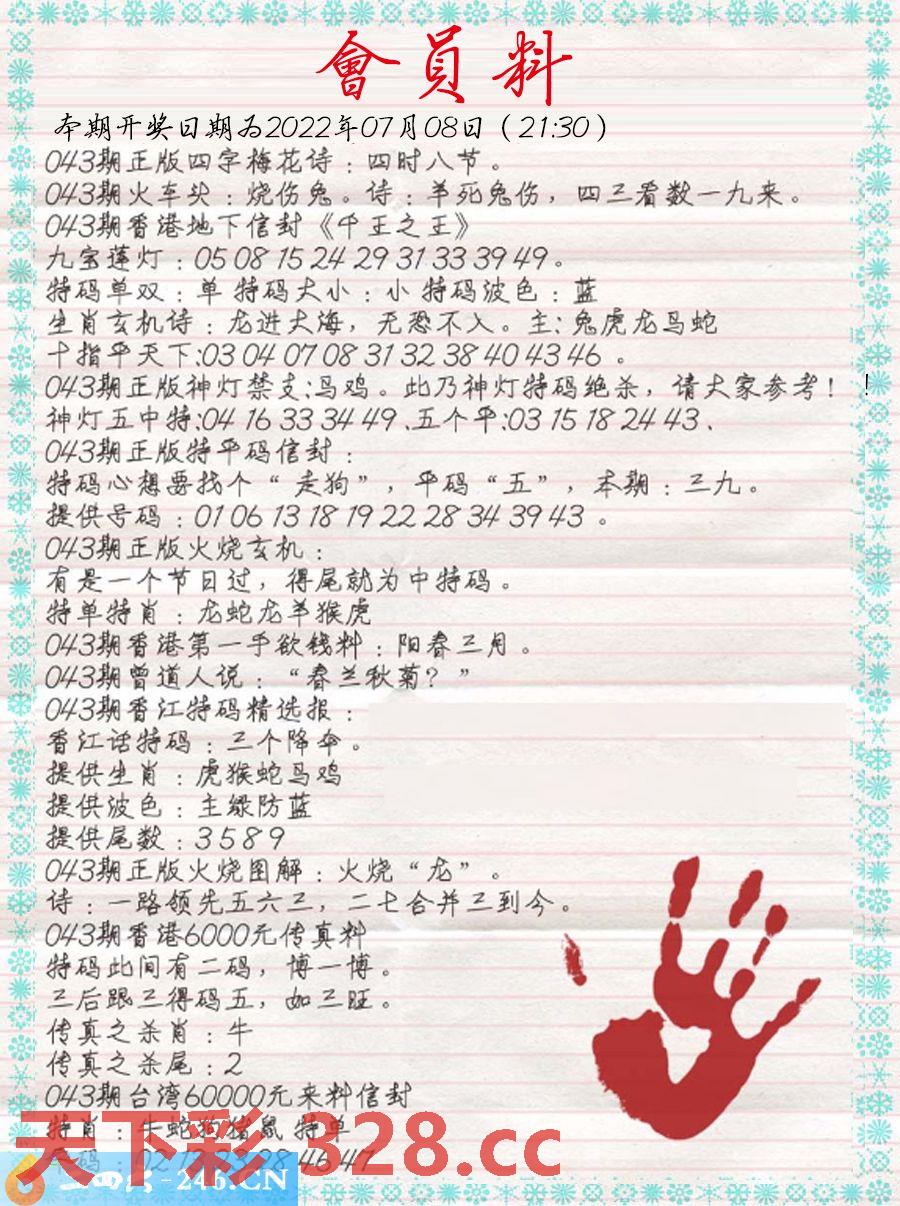 會員料
本期开奖日期为2022年07月08日（21:30）
043期正版四字梅花诗：四时八节。
043期火车头：烧伤兔。诗：羊死兔伤，四三看数一九来。
043期香港地下信封《千王之王》
九宝莲灯：05 08 15 24 29 31 33 39 49。
特码单双：单 特码大小：小 特码波色：蓝
生肖玄机诗：龙进大海，无恐不入。主：兔虎龙马蛇
十指平天下:03 04 07 08 31 32 38 40 43 46 。
043期正版神灯禁支:马鸡。此乃神灯特码绝杀，请大家参考！！
神灯五中特:04 16 33 34 49 、五个平:03 15 18 24 43 、
043期正版特平码信封：
特码心想要找个“ 走狗”，平码“五”，本期：三九。
提供号码：01 06 13 18 19 22 28 34 39 43 。
043期正版火烧玄机：
有是一个节日过，得尾就为中特码。
特单特肖：龙蛇龙羊猴虎
043期香港第一手欲钱料：阳春三月。
043期曾道人说：“春兰秋菊？”
043期香江特码精选报：
香江话特码：三个降伞。
提供生肖：虎猴蛇马鸡
提供波色：主绿防蓝
提供尾数：3 5 8 9
043期正版火烧图解：火烧“龙”。
诗：一路领先五六三，二七合并三到今。
043期香港6000元传真料
特码此间有二码，博一博。
三后跟三得码五，如三旺。
传真之杀肖：牛
传真之杀尾：2
043期台湾60000元来料信封
特肖：牛蛇狗猪鼠 特单
天下彩 328.cc
28 46 47
-246.CN